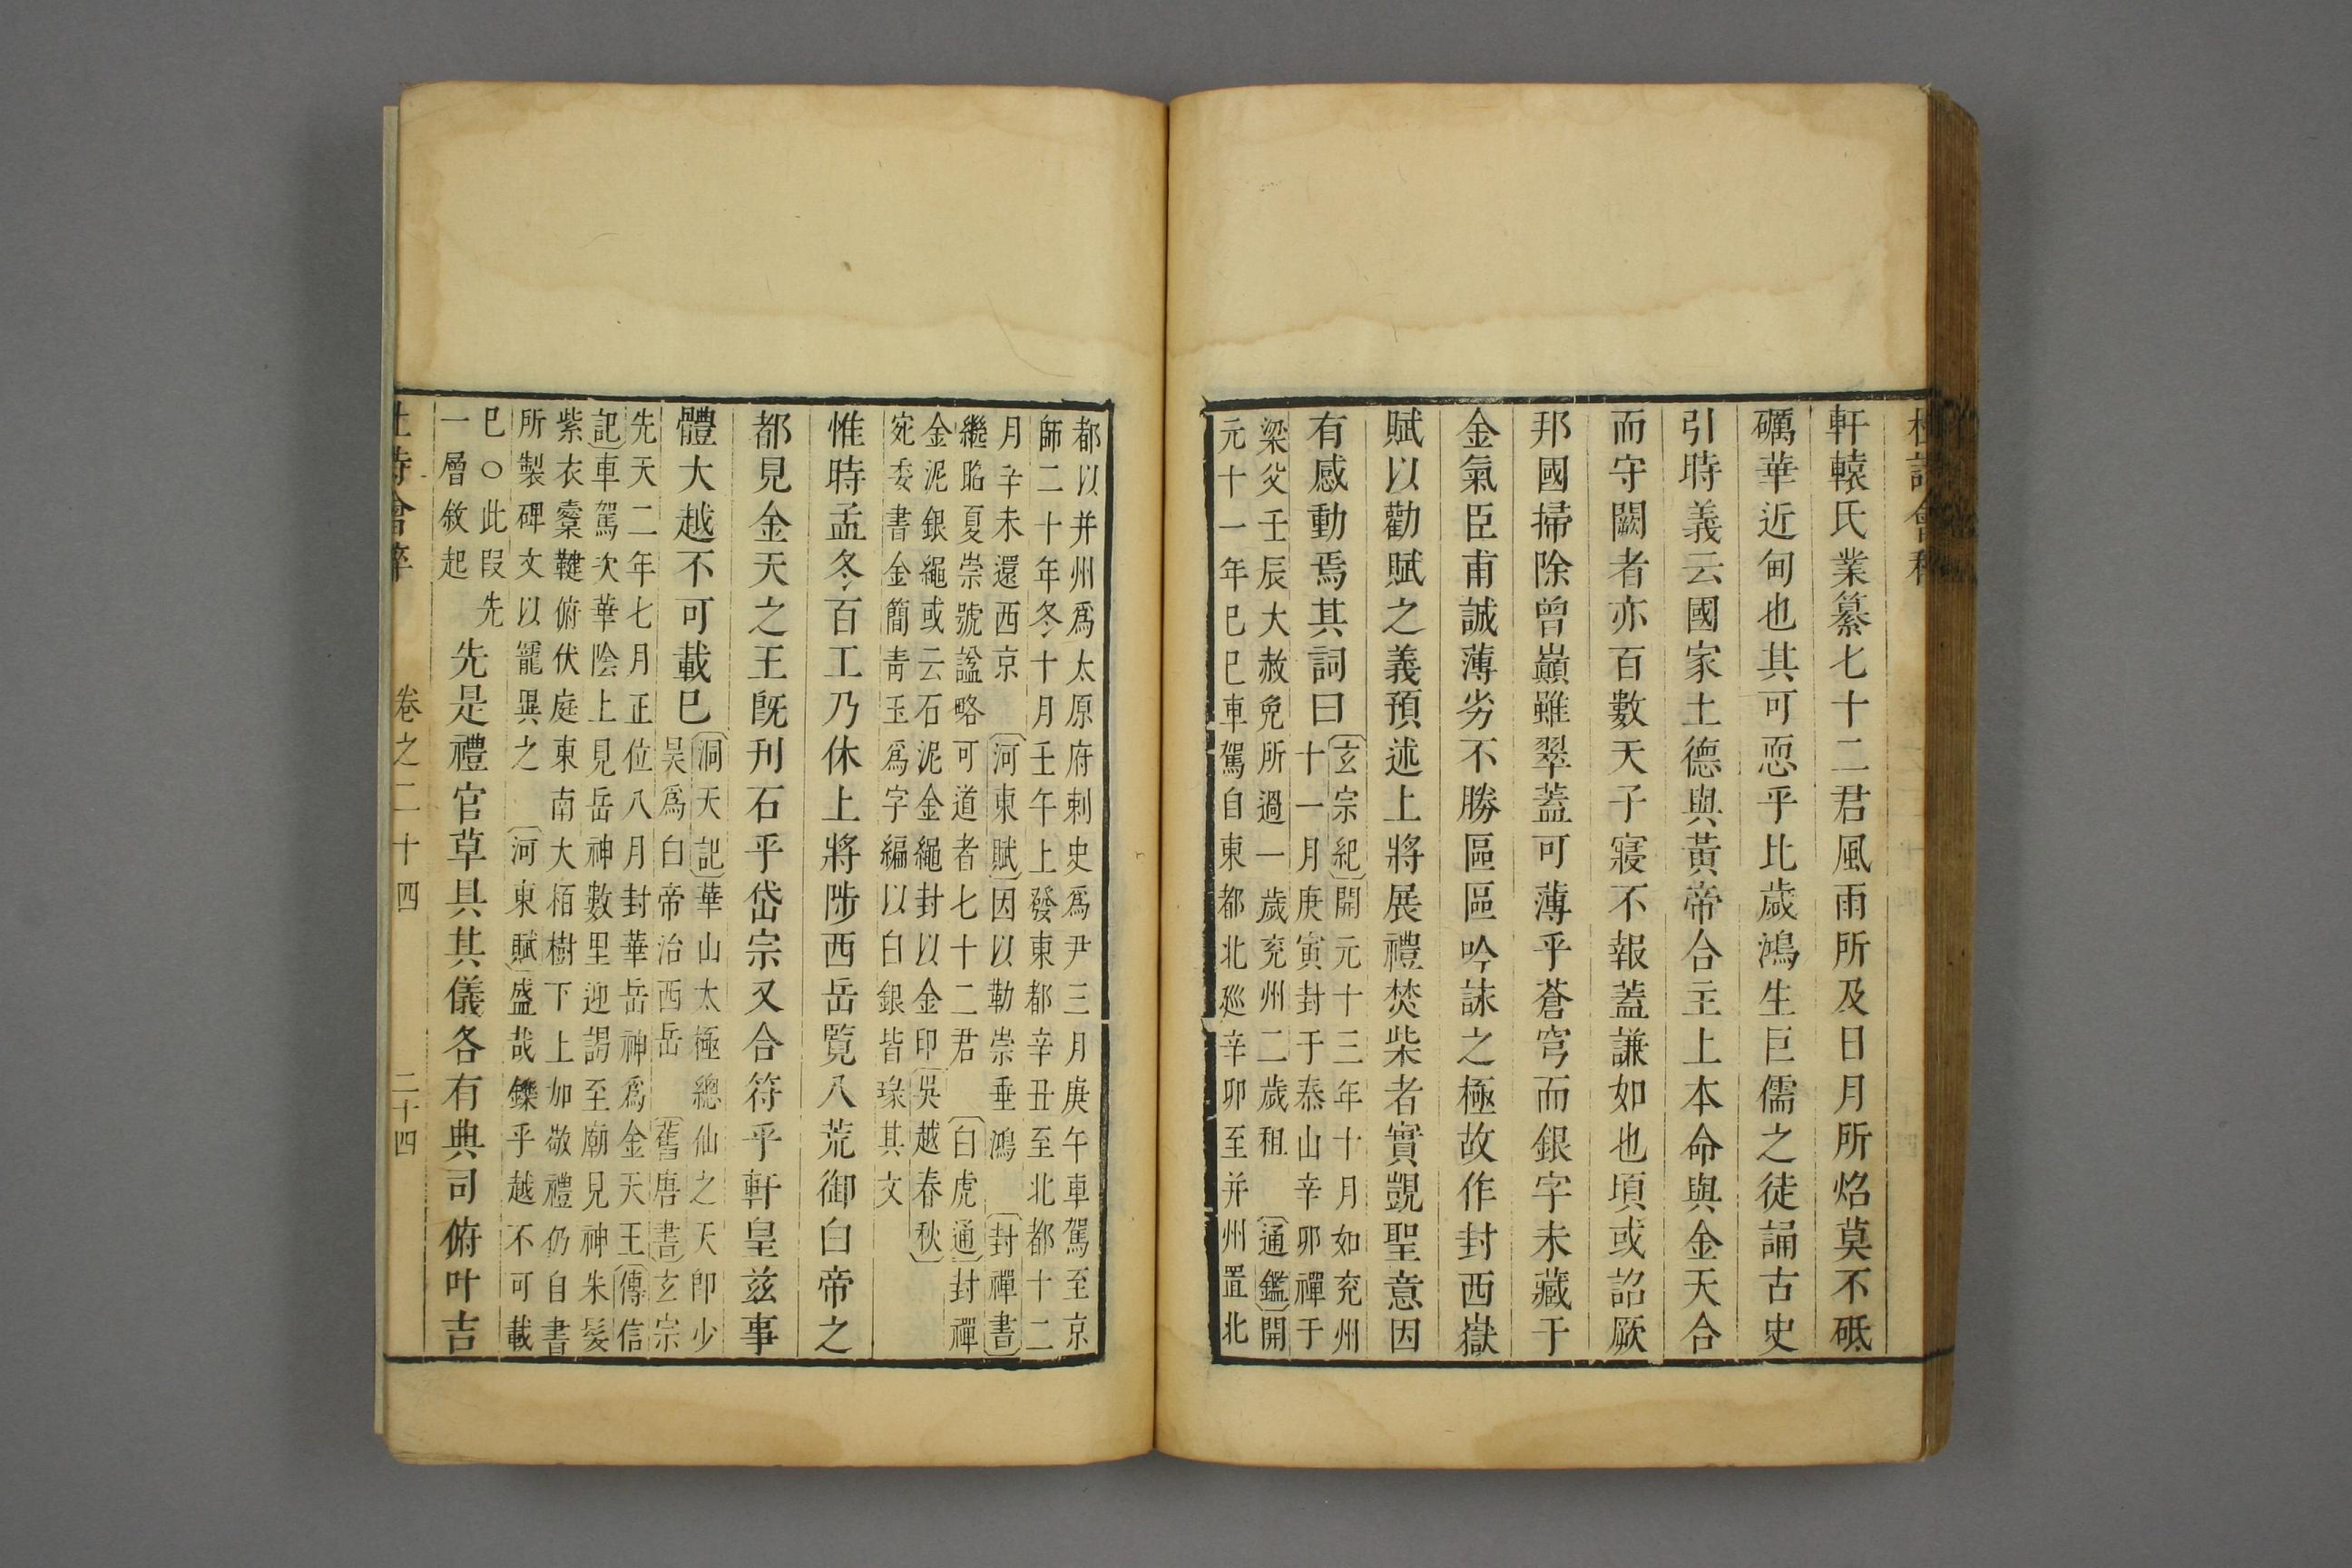 杜詩會稡
軒轅氏業纂七十二君風雨所及日月所炤莫不砥
礪華近甸也其可恧乎比歲鴻生巨儒之徒誦古史
引時義云國家土德與黃帝合主上本命與金天合
而守闕者亦百數天子寢不報蓋謙如也頃或詔厥
邦國掃除曾巔雖翠蓋可薄乎蒼穹而銀字未藏于
金氣臣甫誠薄劣不勝區區吟誄之極故作封西嶽
賦以勸賦之義預述上將展禮焚柴者實覬聖意因
有感動焉其詞曰
〔玄宗紀〕開元十三年十月如兖州
十一月庚寅封于泰山辛卯禪于
梁父壬辰大赦免所過一歲兖州二歲租〔通鑑〕開
元十一年巳巳車駕自東都北廵辛卯至并州置北
都以并州爲太原府刺史爲尹三月庚午車駕至京
師二十年冬十月壬午上發東都辛丑至北都十二
月辛未還西京〔河東賦〕因以勒崇垂鴻〔封禪書〕
繼眧夏崇號諡略可道者七十二君〔白虎通〕封禪
金泥銀繩或云石泥金繩封以金印〔吳越春秋〕
宛委書金簡靑玉爲字編以白銀皆瑑其文
惟時孟冬百工乃休上將陟西岳覽八荒御白帝之
都見金天之王旣刊石乎岱宗又合符乎軒皇茲事
體大越不可載巳
〔洞天記〕華山太極總仙之天卽少
吴爲白帝治西岳〔舊唐書〕玄宗
先天二年七月正位八月封華岳神爲金天王〔傳信
記〕車駕次華陰上見岳神數里迎謁至廟見神朱髮
紫衣櫜鞬俯伏庭東南大栢樹下上加敬禮仍自書
所製碑文以寵異之〔河東賦〕盛哉鑠乎越不可載
巳○此叚先
一層敘起
先是禮官草具其儀各有典司俯叶吉
杜詩會稡 卷之二十四 二十四